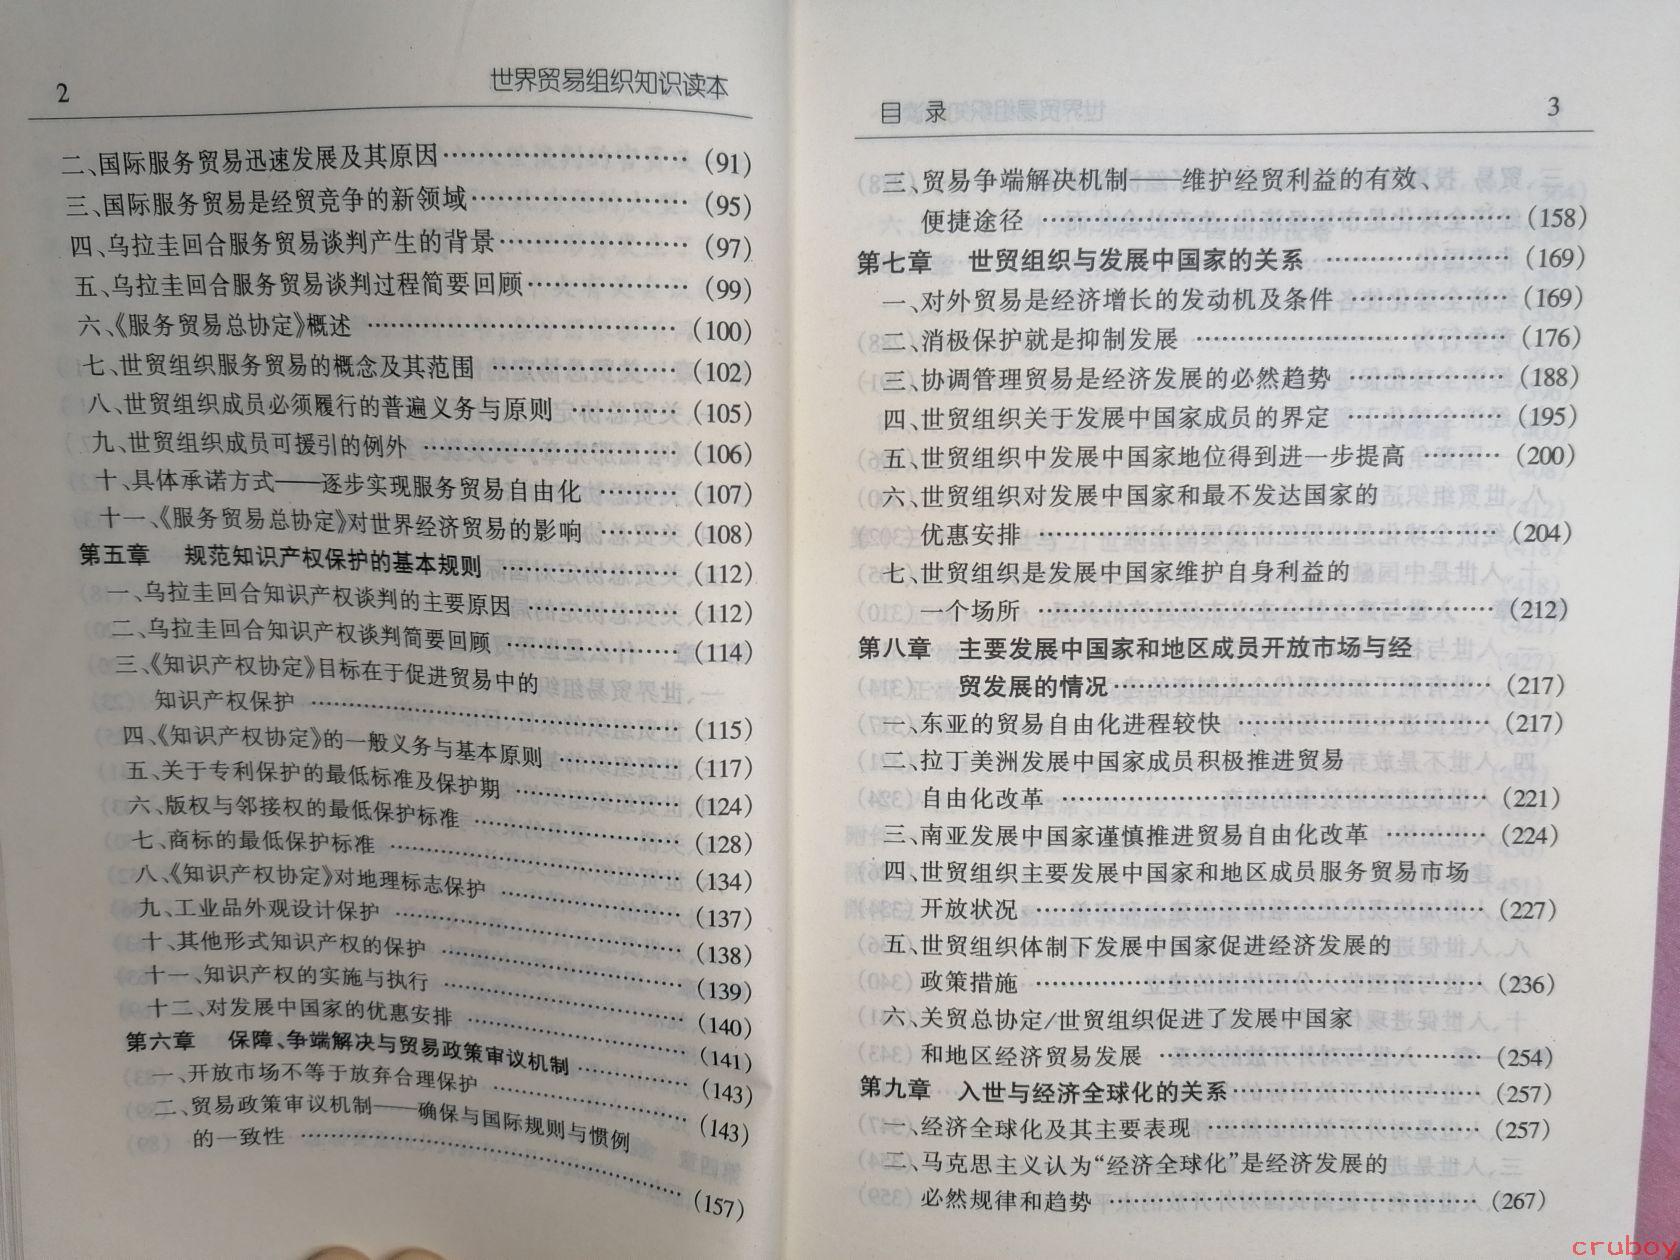 2 世界贸易组织知识读本
二、国际服务贸易迅速发展及其原因…………………………(91)
三、国际服务贸易是经贸竞争的新领域………………………(95)
四、乌拉圭回合服务贸易谈判产生的背景……………………(97)
五、乌拉圭回合服务贸易谈判过程简要回顾…………………(99)
六、《服务贸易总协定》概述 ………………………………(100)
七、世贸组织服务贸易的概念及其范围 ……………………(102)
八、世贸组织成员必须履行的普遍义务与原则 ……………(105)
九、世贸组织成员可援引的例外 ……………………………(106)
十、具体承诺方式——逐步实现服务贸易自由化 …………(107)
十一、《服务贸易总协定》对世界经济贸易的影响 ………(108)
第五章 规范知识产权保护的基本规则 ……………………(112)
一、乌拉圭回合知识产权谈判的主要原因 …………………(112)
二、乌拉圭回合知识产权谈判简要回顾 ……………………(114)
三、《知识产权协定》目标在于促进贸易中的
知识产权保护 …………………………………………………(115)
四、《知识产权协定》的一般义务与基本原则 ……………(117)
五、关于专利保护的最低标准及保护期 ……………………(124)
六、版权与邻接权的最低保护标准 …………………………(128)
七、商标的最低保护标准 ……………………………………(134)
八、《知识产权协定》对地理标志保护 ……………………(137)
九、工业品外观设计保护 ……………………………………(138)
十、其他形式知识产权的保护 ………………………………(139)
十一、知识产权的实施与执行 ………………………………(140)
十二、对发展中国家的优惠安排 ……………………………(141)
第六章 保障、争端解决与贸易政策审议机制 ……………(143)
一、开放市场不等于放弃合理保护 …………………………(143)
二、贸易政策审议机制——确保与国际规则与惯例
的一致性 ………………………………………………………(157)
目 录 3
三、贸易争端解决机制——维护经贸利益的有效、
便捷途径 ………………………………………………………(158)
第七章 世贸组织与发展中国家的关系 ……………………(169)
一、对外贸易是经济增长的发动机及条件 …………………(169)
二、消极保护就是抑制发展 …………………………………(176)
三、协调管理贸易是经济发展的必然趋势 …………………(188)
四、世贸组织关于发展中国家成员的界定 …………………(195)
五、世贸组织中发展中国家地位得到进一步提高 …………(200)
六、世贸组织对发展中国家和最不发达国家的
优惠安排 ………………………………………………………(204)
七、世贸组织是发展中国家维护自身利益的
一个场所 ………………………………………………………(212)
第八章 主要发展中国家和地区成员开放市场与经
贸发展的情况……………………………………………………(217)
一、东亚的贸易自由化进程较快 ……………………………(217)
二、拉丁美洲发展中国家成员积极推进贸易
自由化改革 ……………………………………………………(221)
三、南亚发展中国家谨慎推进贸易自由化改革 ……………(224)
四、世贸组织主要发展中国家和地区成员服务贸易市场
开放状况 ………………………………………………………(227)
五、世贸组织体制下发展中国家促进经济发展的
政策措施 ………………………………………………………(236)
六、关贸总协定/世贸组织促进了发展中国家
和地区经济贸易发展 …………………………………………(254)
第九章 入世与经济全球化的关系……………………………(257)
一、经济全球化及其主要表现 ………………………………(257)
二、马克思主义认为“经济全球化”是经济发展的
必然规律和趋势 ………………………………………………(267)
cruboy